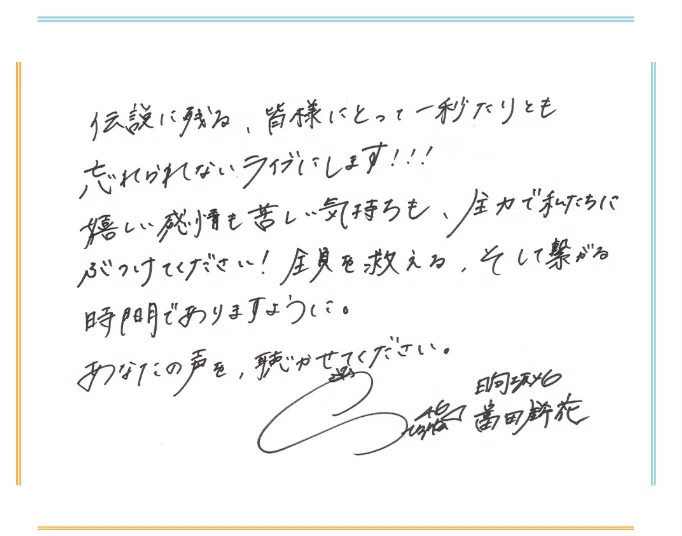 伝説に残る、皆様にとって一秒たりとも
忘れられないライブにします!!!
嬉しい感情も苦しい気持ちも、全力で私たちに
ぶつけてください! 全員を救える、そして繋がる
時間でありますように。
あなたの声を、聴かせてください。
日向坂46
富田鈴花